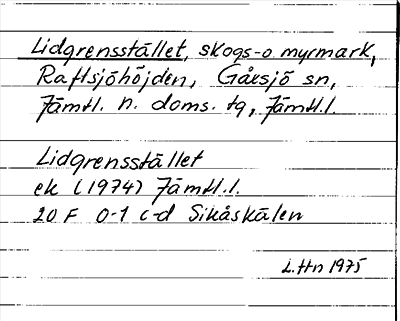 Lidgrensstället, skogs-o. myrmark,
Raftsjöhöjden, Gåxsjö sn,
Jämtl. n. doms. tg, Jämtl.l.
Lidgrensstället
ek (1974) Jämtl.l.
20 F 0-1 c-d Sikåskälen
L.Hn 1975